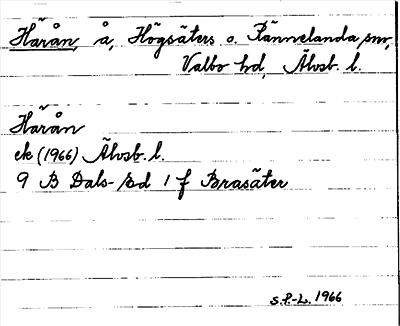 Härån, å, Högsäters o. Rännelanda snr,
Valbo hd, Älvsb. l.
Härån
ek (1966) Älvsb. l.
9 B Dals-Ed 1 f Brasäter
S.P.-L. 1966